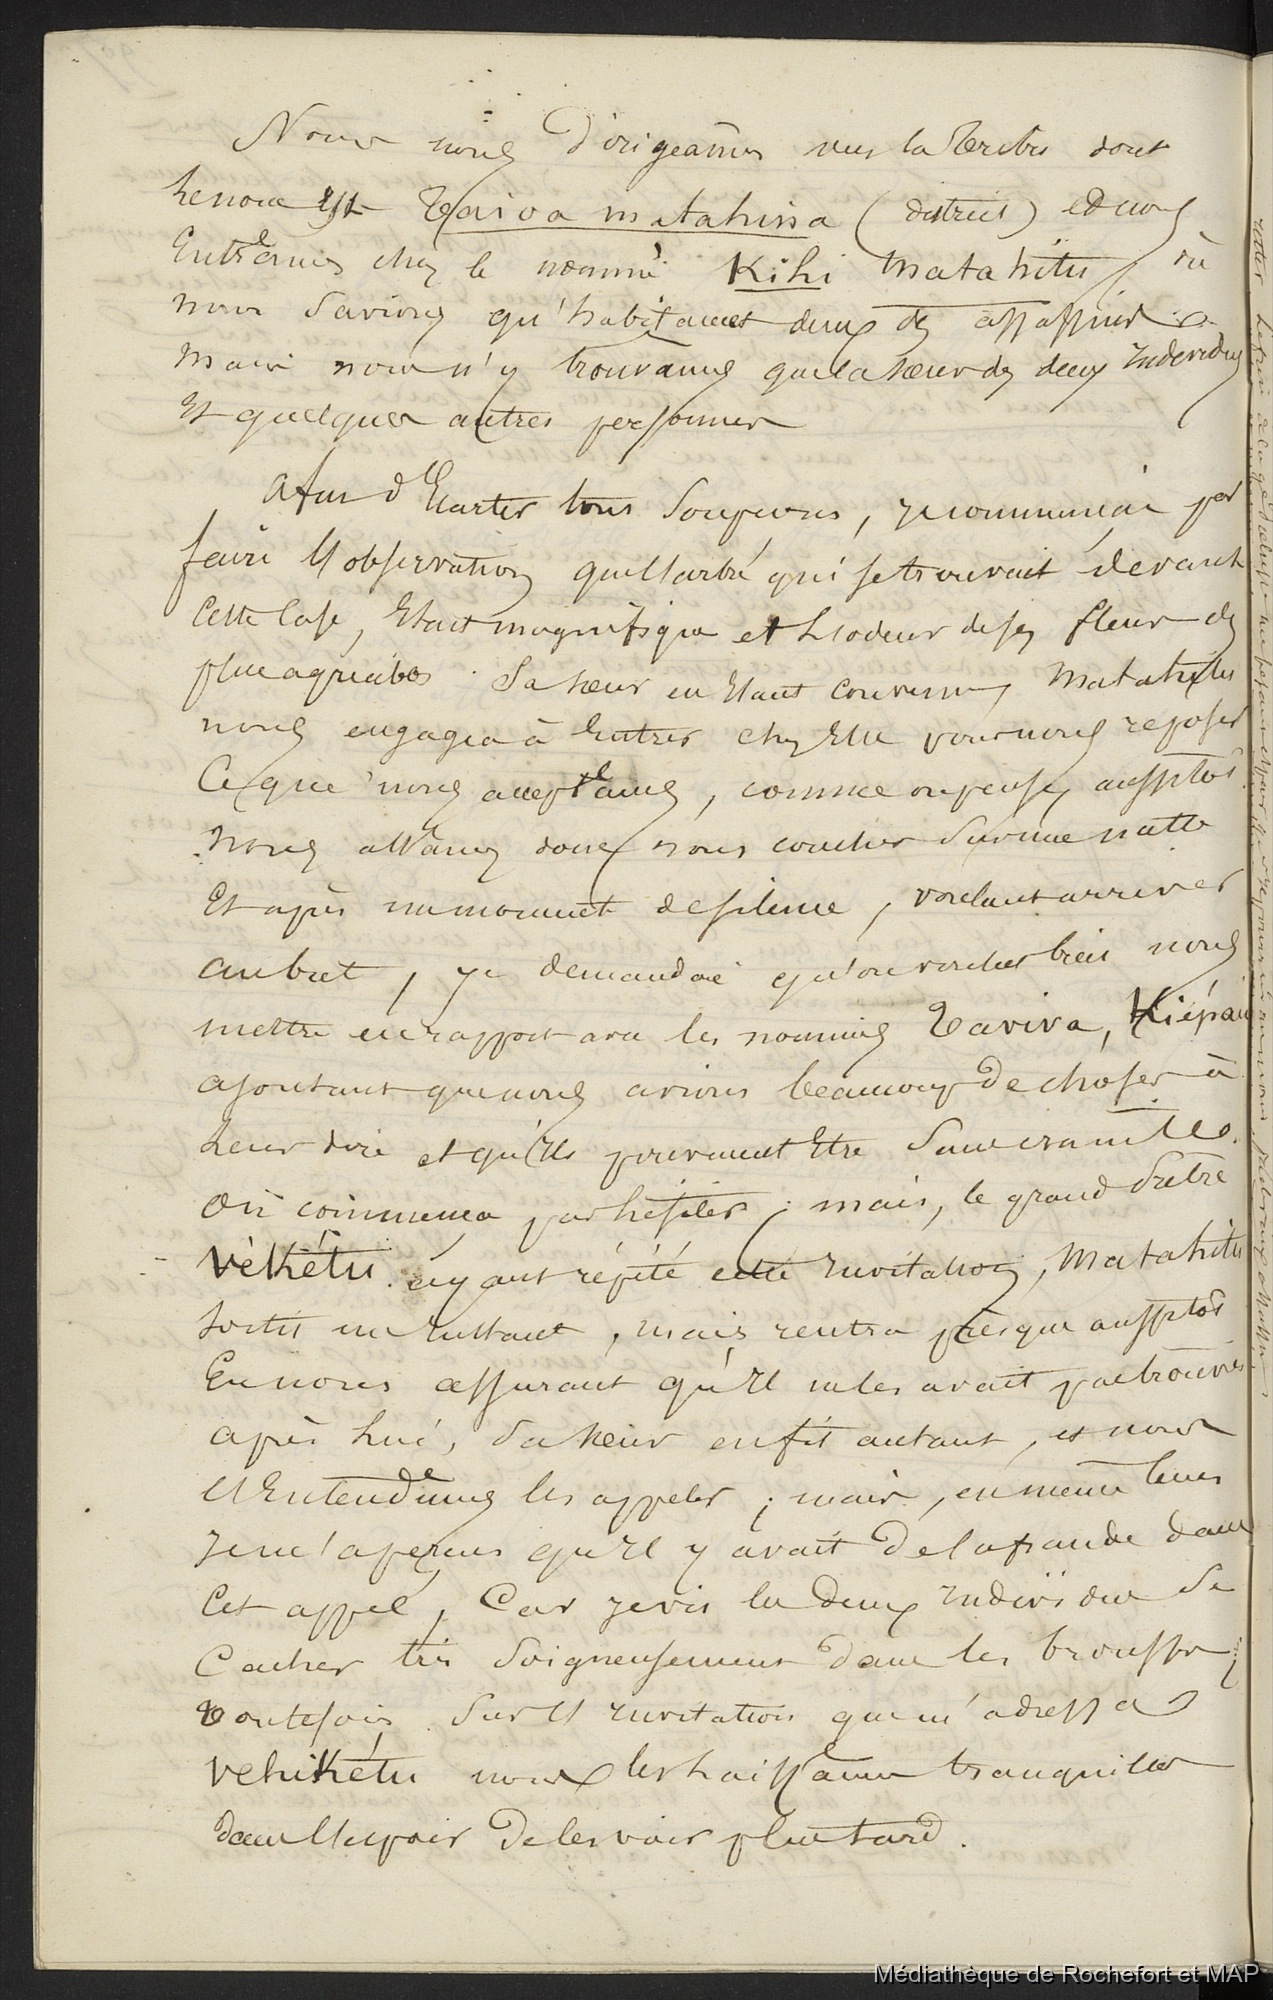 Nous nous Dirigeâmes vers la Tribu dont
Le nom Est Taioa matahiva (district) et nous
Entrâmes chez le nommé Kihi matahitu, où
nous Savions qu'habitaient deux des assassins
mais nous n'y trouvâmes que la sœur des deux Individus
Et quelques autres personnes
Afin d'Ecarter tous Soupçons, je commençai par
faire l'observation que l'arbre qui se trouvait devant
Cette Case, Etait magnifique et L'odeur de ses fleurs des
plus agréables. Sa sœur en Etant convenue, Matahitu
nous engagea à Entrer chez Elle pour nous reposer
Ce que nous acceptâmes, comme on pense, aussitôt
nous allâmes donc nous coucher Sur une natte
Et après un moment de silence, voulant arriver
au but, je demandai qu'on voulut bien nous
mettre en rapport avec les nommés Taviva, Kiépai
ajoutant que nous avions beaucoup De choses à
Leur dire et qu'Ils pouvaient Etre Sans crainte.
On commença par hésiter; mais, le grand Prêtre
Vékétu ayant répété cette Invitation, Matahitu
Sortit un Instant, mais rentra presque aussitôt
En nous assurant qu'Il ne les avait pas trouvés
après Lui, Sa sœur en fit autant, et nous
l'Entendîmes les appeler; mais, en même tems
Je m'aperçus qu'Il y avait De la fraude dans
Cet appel, Car je vis les Deux Individus Se
Cacher très Soigneusement Dans les broussses;
Toutefois Sur l'Invitation que m'adressa
Vehikétu nous les Laissâmes tranquilles
Dans l'Espoir De les voir plus tard.
Médiathèque de Rochefort et MAP